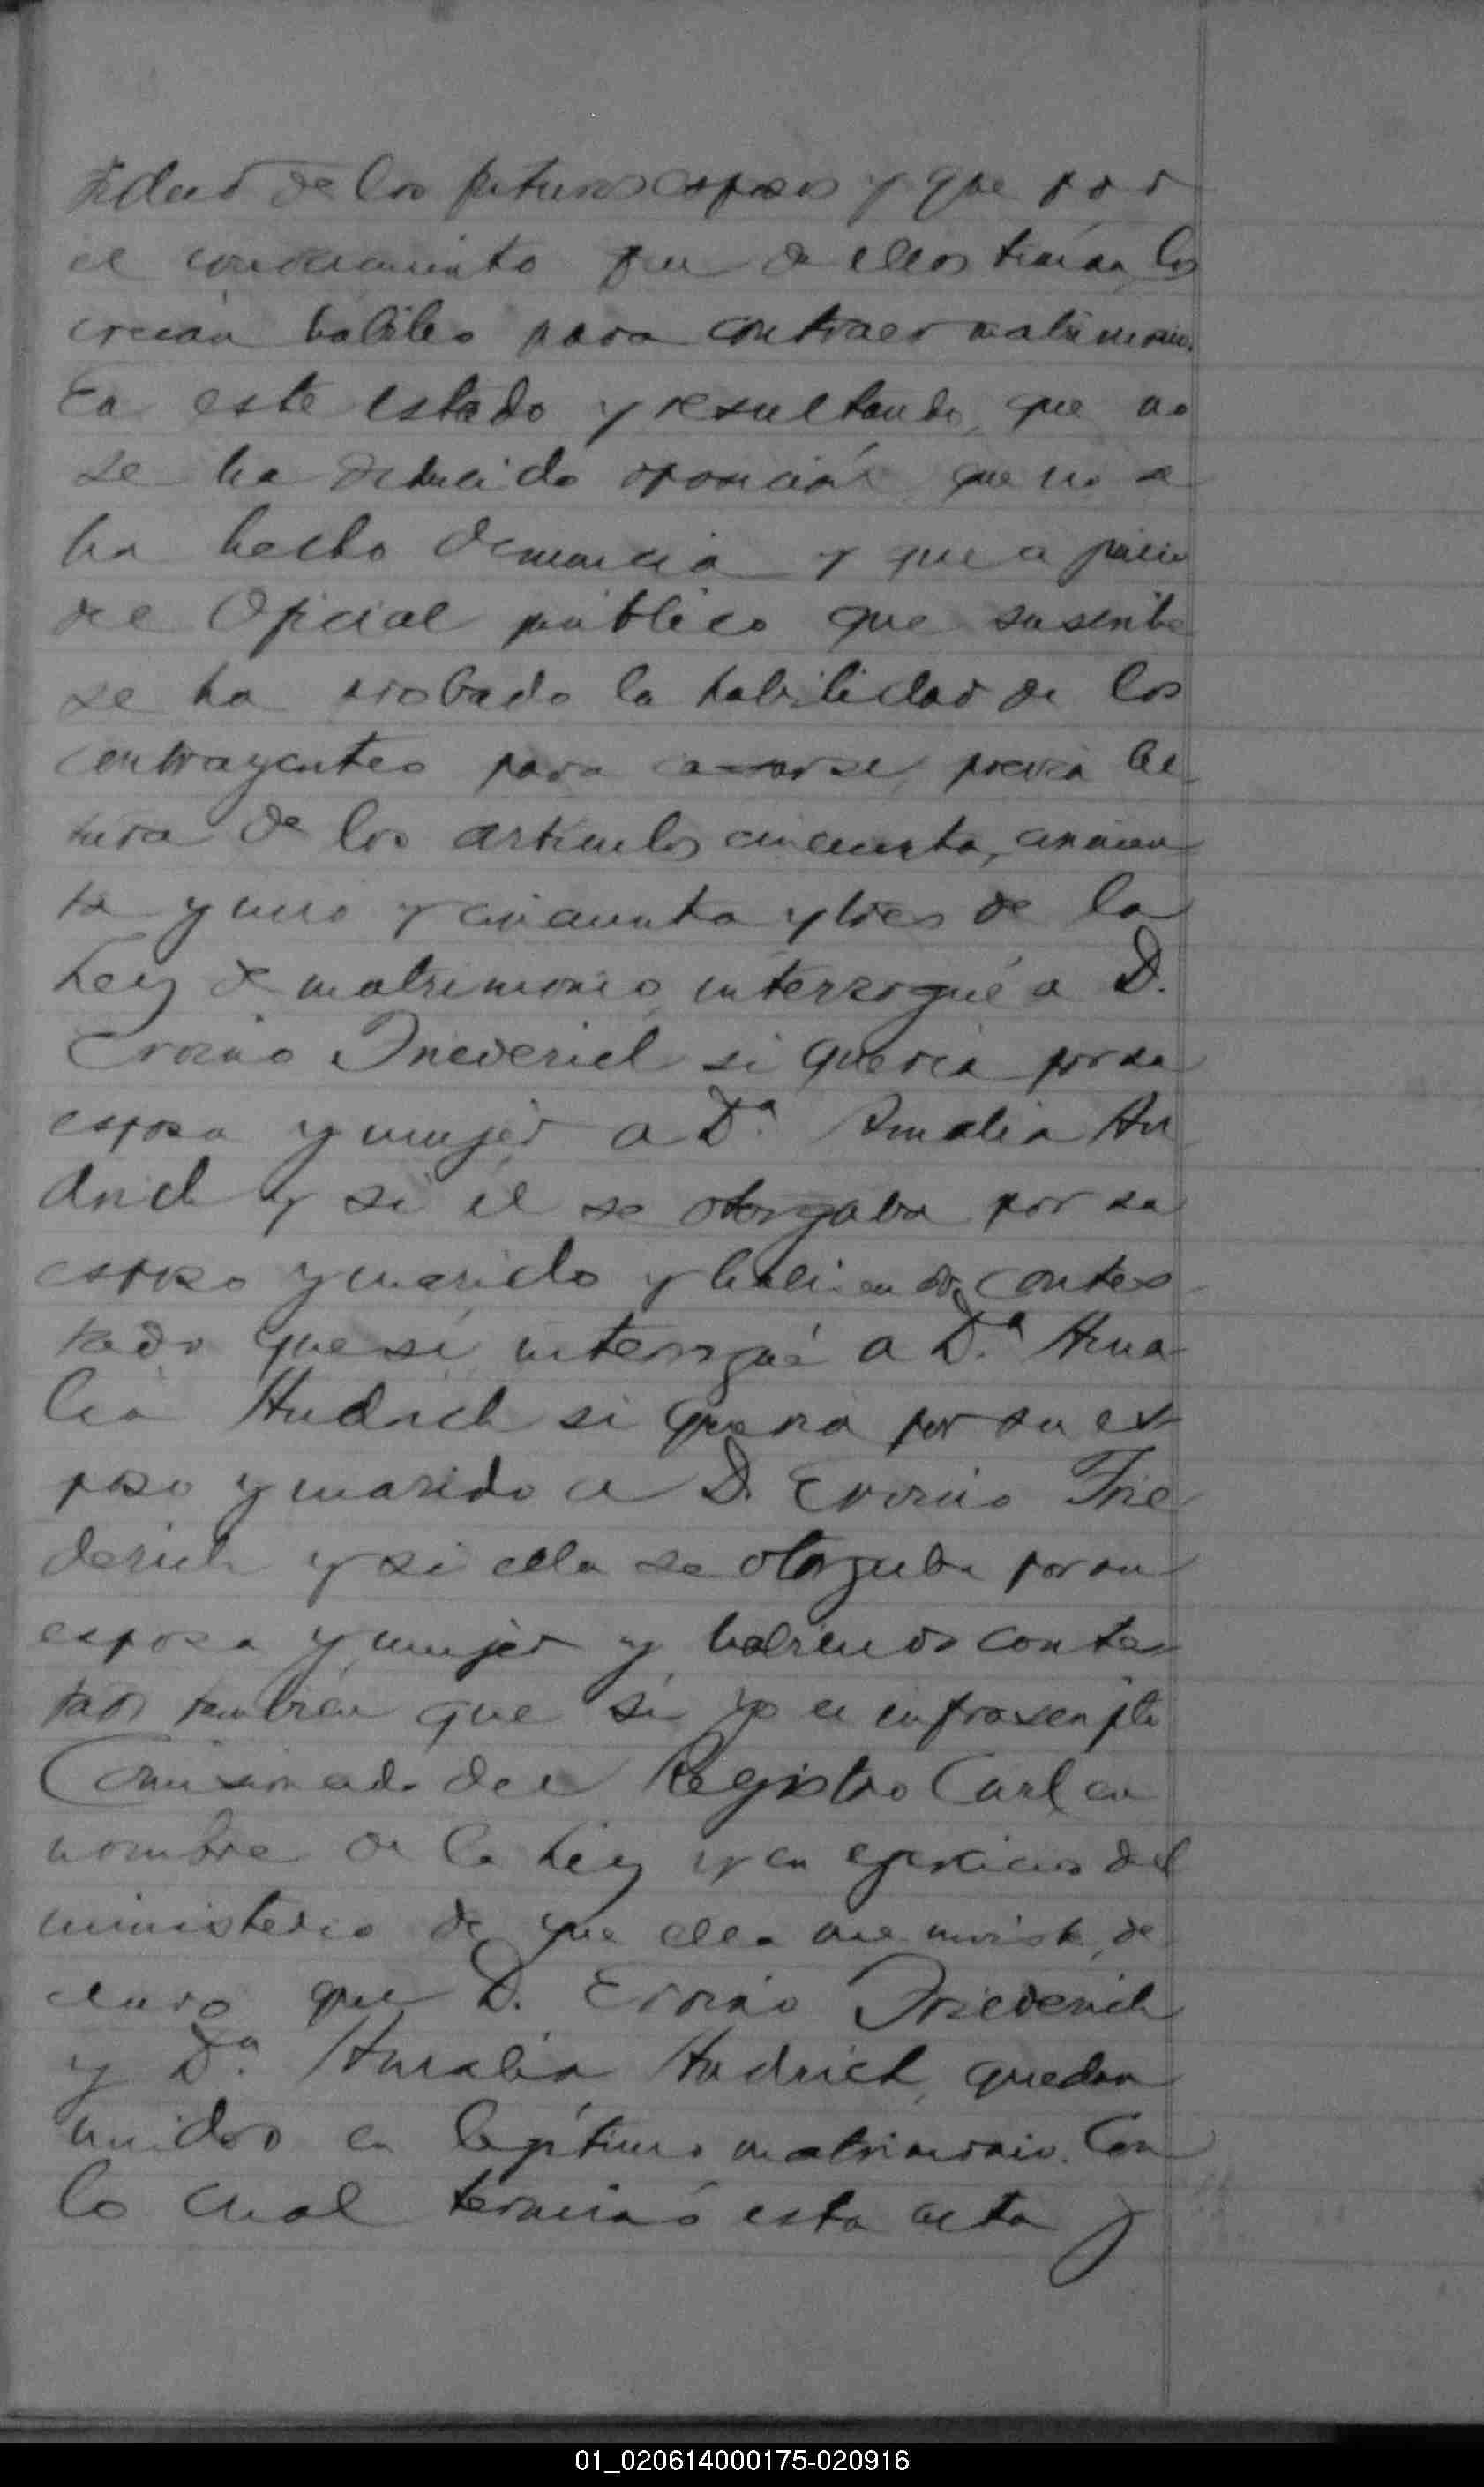 tidad de los futuros esposos y que por
el conocimiento que de ellos tenían, los
creían hábiles para contraer matrimonio.
En este estado y resultando, que no
se ha deducido oposición, que no se
ha hecho denuncia y que a juicio
del Oficial público que suscribe
se ha probado la habilidad de los
contrayentes para casarse, previa lec
tura de los artículos cincuenta, cincuen
ta y uno y cincuenta y tres de la
Ley de matrimonio, interrogué a D.
Erwino Friederich si quería por su
esposa y mujer a Dª. Amalia An
drich y si él se otorgaba por su
esposo y marido y habiendo contes
tado que sí, interrogué a D.ª Ama
lia Andrich si quería por su es
poso y marido a D. Erwino Frie
derich y si ella se otorgaba por su
esposa y mujer y habiendo contes
tado también que sí yo el infrascripto
Comisionado del Registro Civil, en
nombre de la Ley y en ejercicio del
ministerio de que ella me inviste, de
claro que D. Erwino Friederich
y Dª. Amalia Andrich, quedan
unidos en legítimo matrimonio. Con
lo cual terminó esta acta y
01_020614000175-020916